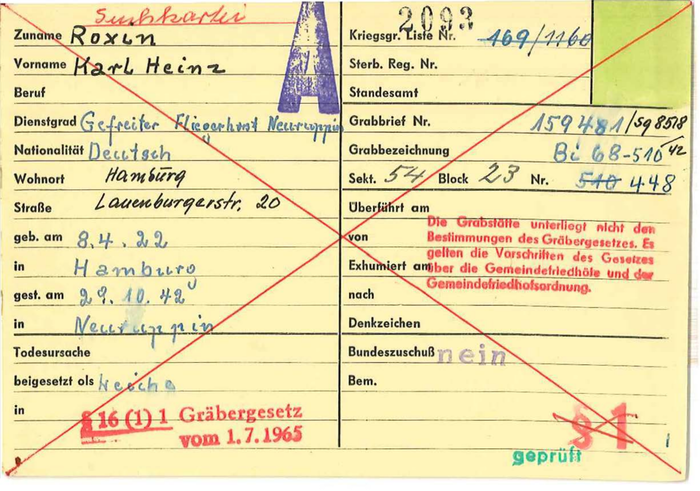 Suchkartei
Zuname Roxin
Vorname Karl Heinz
Beruf
Dienstgrad Gefreiter Fliegerhorst Neuruppin
Nationalität Deutsch
Wohnort Hamburg
Straße Lauenburgerstr. 20
geb. am 8.4.22
in Hamburg
gest. am 29.10.42
in Neuruppin
Todesursache
beigesetzt als Leiche
in
§ 16 (1) 1 Gräbergesetz
vom 1.7.1965
A
2093
Kriegsgr. Liste Nr. 169/1160
Sterb. Reg. Nr.
Standesamt
Grabbrief Nr. 159481/Sg 8518/42
Grabbezeichnung Bi 68-510
Sekt. 54 Block 23 Nr. 510 448
Überführt am
von
Exhumiert am
nach
Die Grabstätte unterliegt nicht den
Bestimmungen des Gräbergesetzes. Es
gelten die Vorschriften des Gesetzes
über die Gemeindefriedhöfe und der
Gemeindefriedhofsordnung.
Denkzeichen
Bundeszuschuß nein
Bem.
§ 1
geprüft